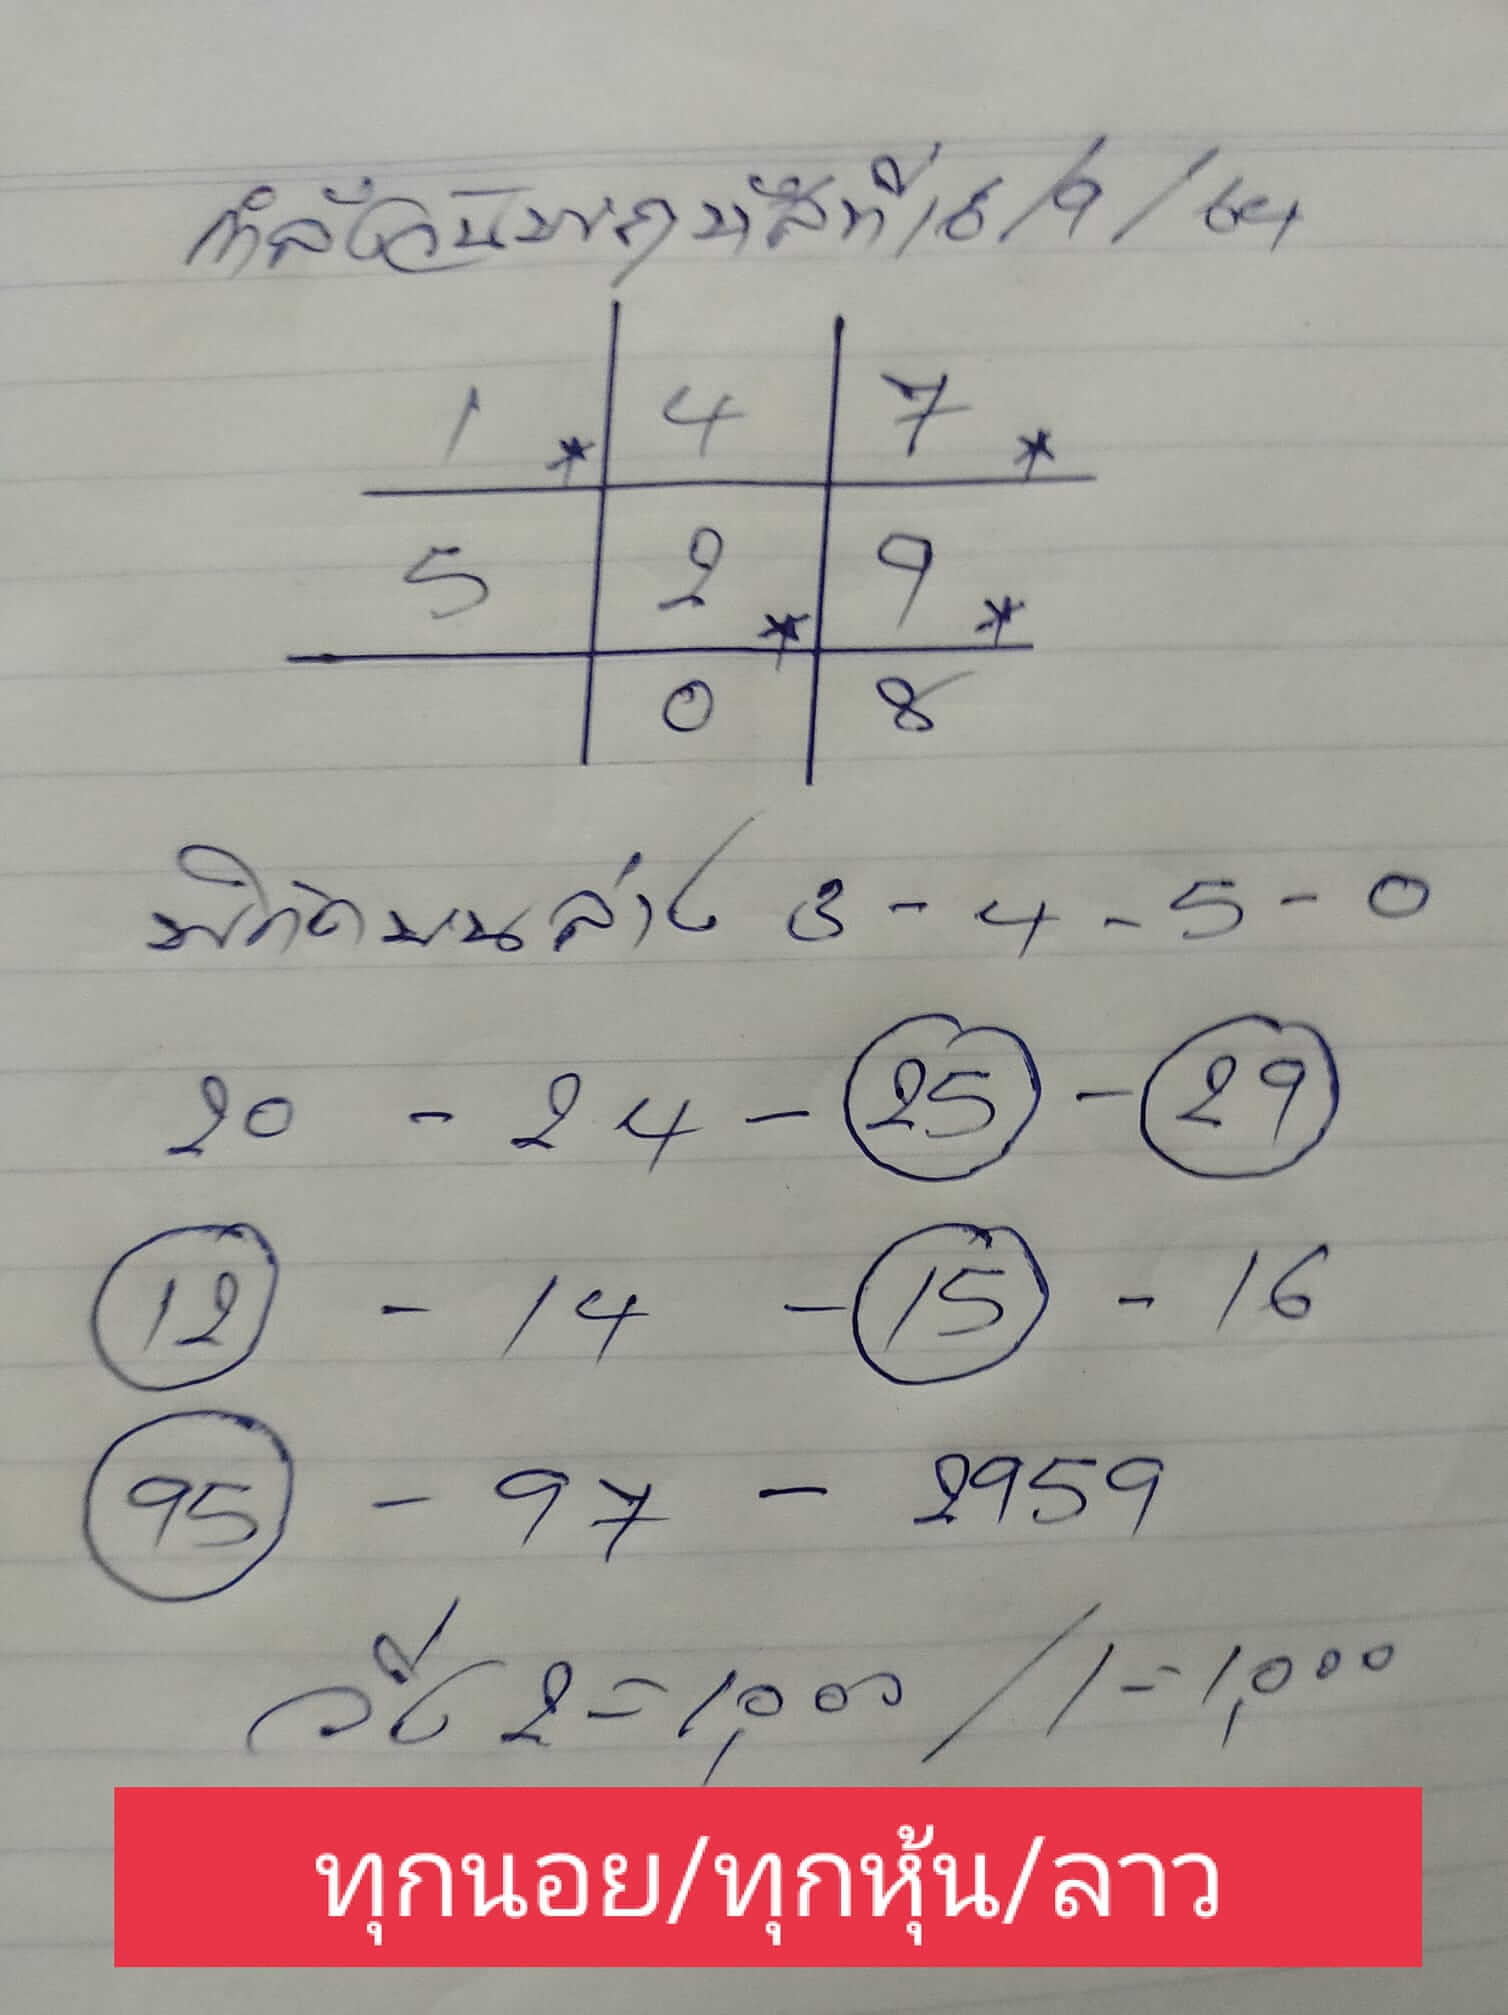 กำลังวันพฤหัสที่ 16/9/64
1 * 4 7 *
5 2 * 9 *
0 8
พิกัดบนล่าง 3 - 4 - 5 - 0
20 - 24 - 25 - 29
12 - 14 - 15 - 16
95 - 97 - 2959
วิ่ง 2 = 1,000 / 1 = 1,000
ทุกนอย/ทุกหุ้น/ลาว